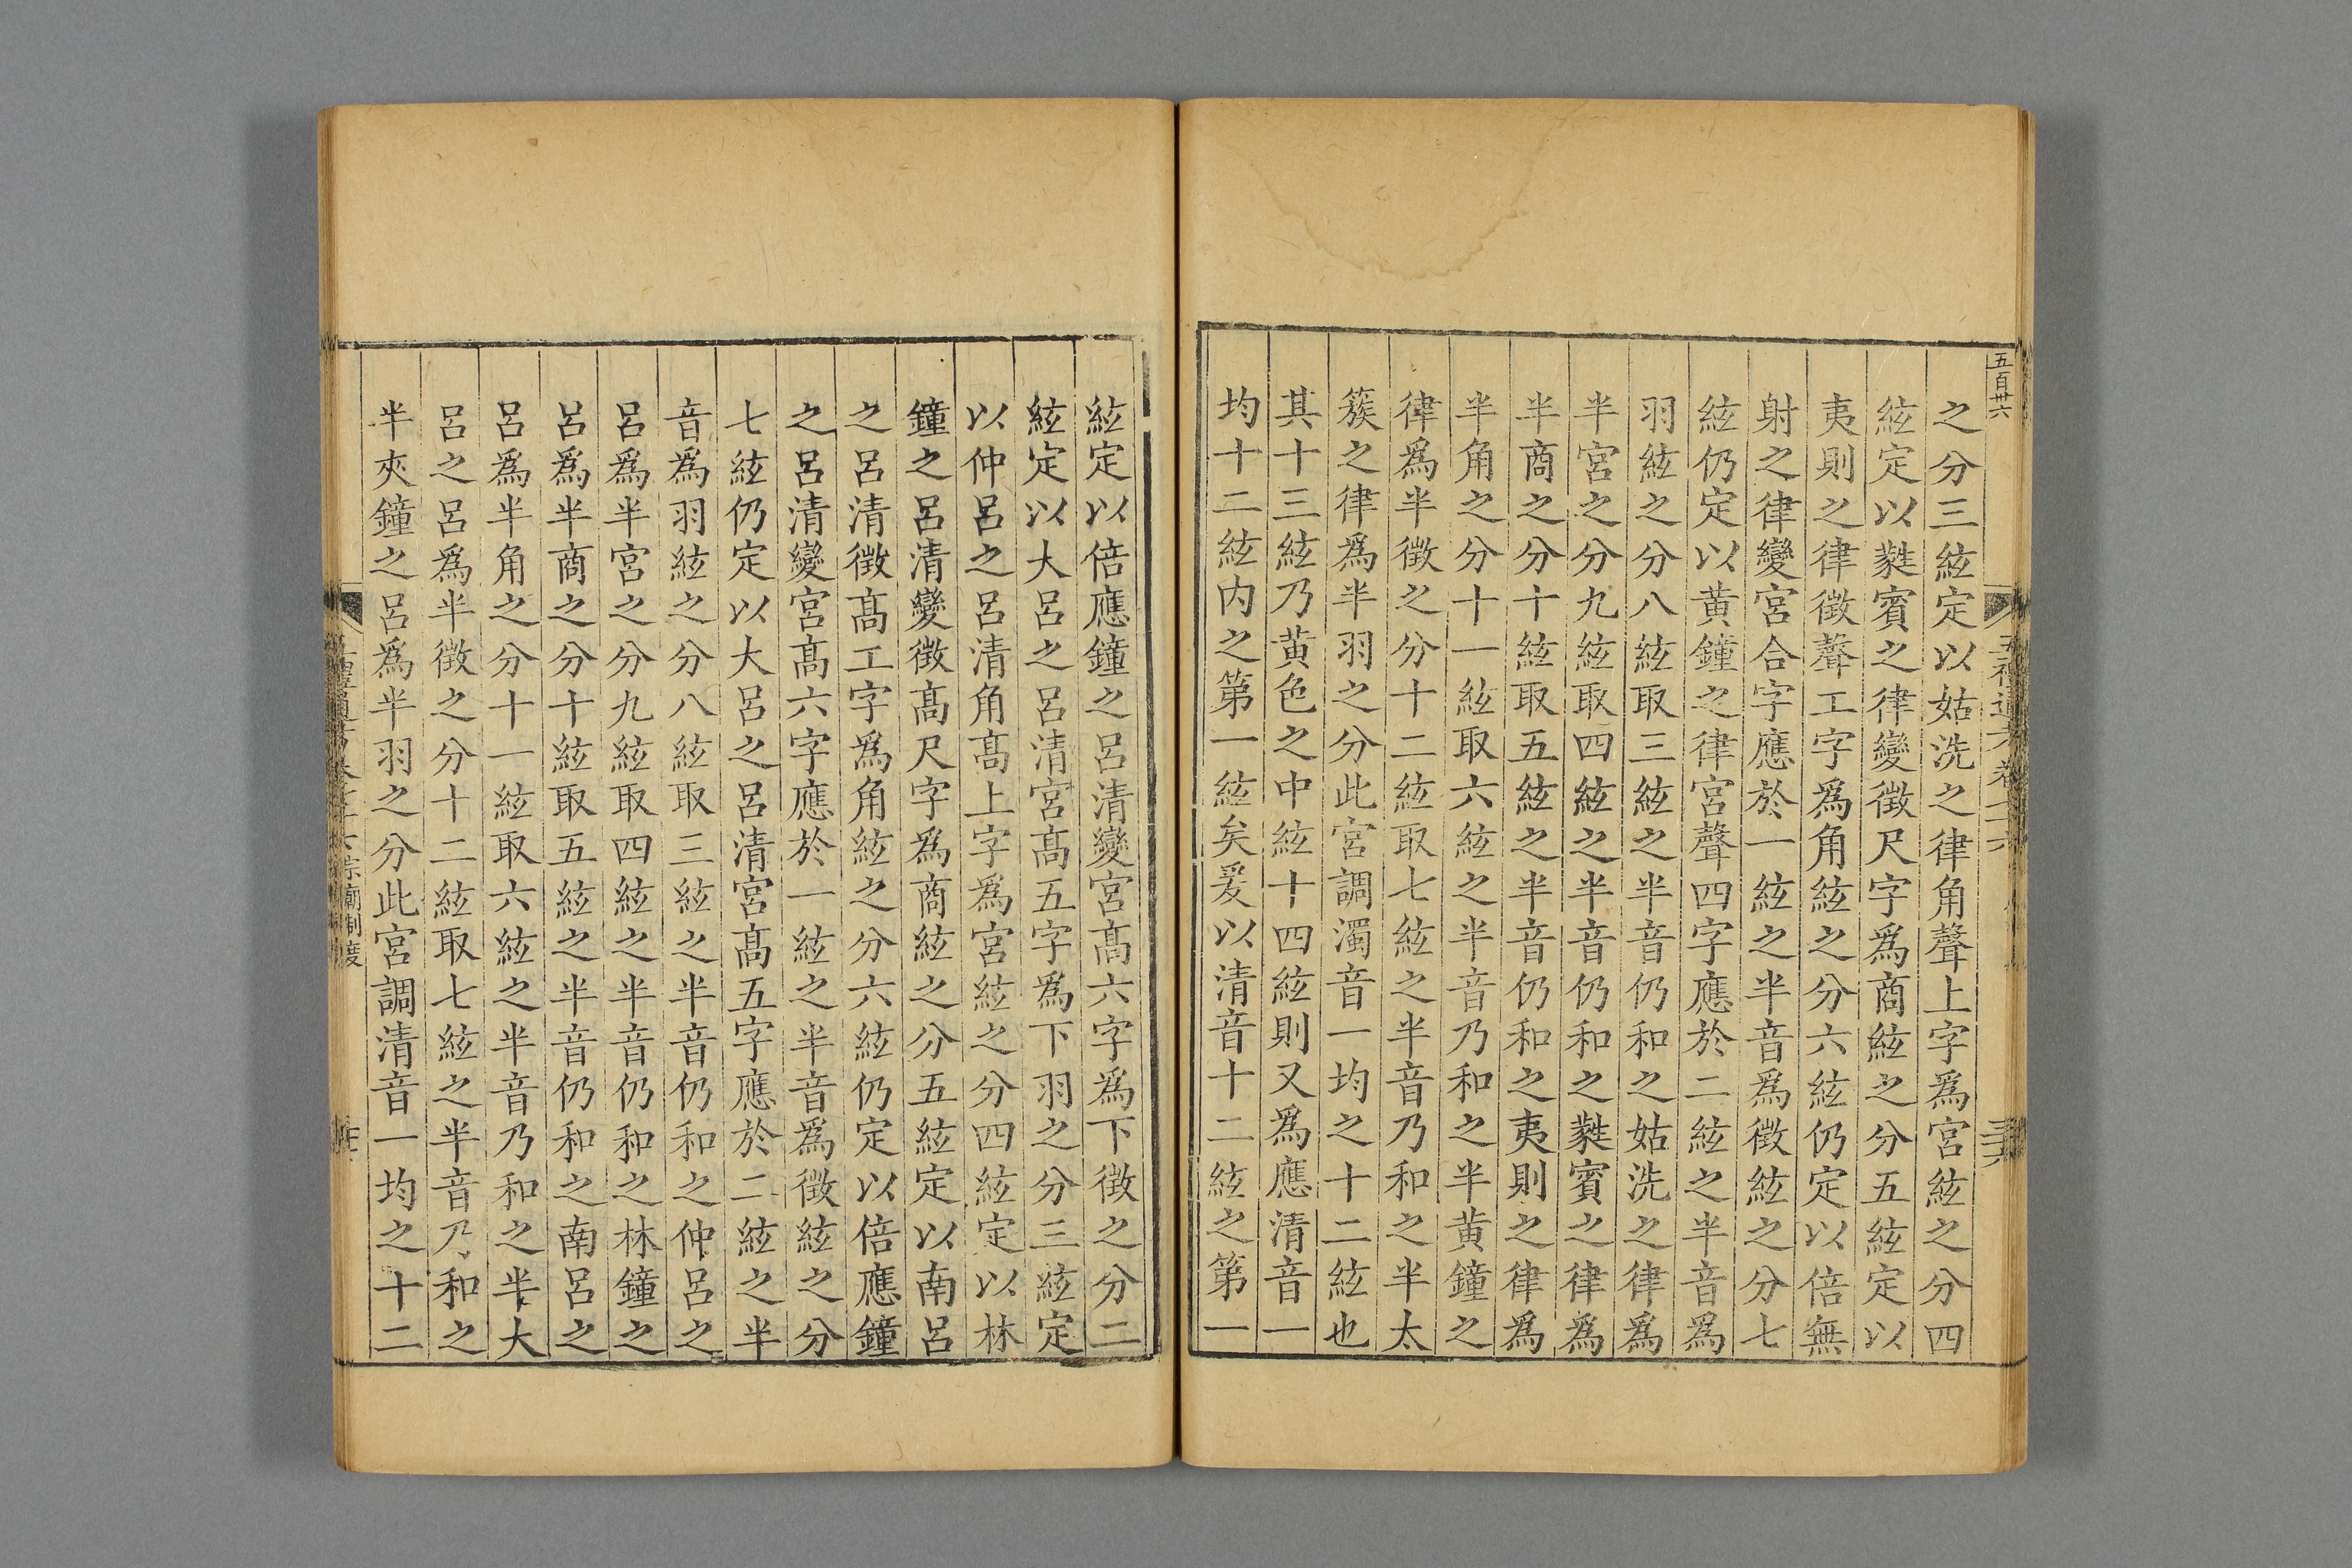 五百卅六
之分三絃定以姑洗之律角聲上字爲宮絃之分四
絃定以蕤賓之律變徵尺字爲商絃之分五絃定以
夷則之律徵聲工字爲角絃之分六絃仍定以倍無
射之律變宮合字應於一絃之半音爲徵絃之分七
絃仍定以黄鐘之律宮聲四字應於二絃之半音爲
羽絃之分八絃取三絃之半音仍和之姑洗之律爲
半宮之分九絃取四絃之半音仍和之蕤賓之律爲
半商之分十絃取五絃之半音仍和之夷則之律爲
半角之分十一絃取六絃之半音乃和之半黄鐘之
律爲半徵之分十二絃取七絃之半音乃和之半太
簇之律爲半羽之分此宮調濁音一均之十二絃也
其十三絃乃黄色之中絃十四絃則又爲應清音一
均十二絃内之第一絃矣爰以清音十二絃之第一
絃定以倍應鐘之呂清變宮髙六字爲下徵之分二
絃定以大呂之呂清宮髙五字爲下羽之分三絃定
以仲呂之呂清角髙上字爲宮絃之分四絃定以林
鐘之呂清變徵髙尺字爲商絃之分五絃定以南呂
之呂清徵髙工字爲角絃之分六絃仍定以倍應鐘
之呂清變宮髙六字應於一絃之半音爲徵絃之分
七絃仍定以大呂之呂清宮髙五字應於二絃之半
音爲羽絃之分八絃取三絃之半音仍和之仲呂之
呂爲半宮之分九絃取四絃之半音仍和之林鐘之
呂爲半商之分十絃取五絃之半音仍和之南呂之
呂爲半角之分十一絃取六絃之半音乃和之半大
呂之呂爲半徵之分十二絃取七絃之半音乃和之
半夾鐘之呂爲半羽之分此宮調清音一均之十二
宗廟制度